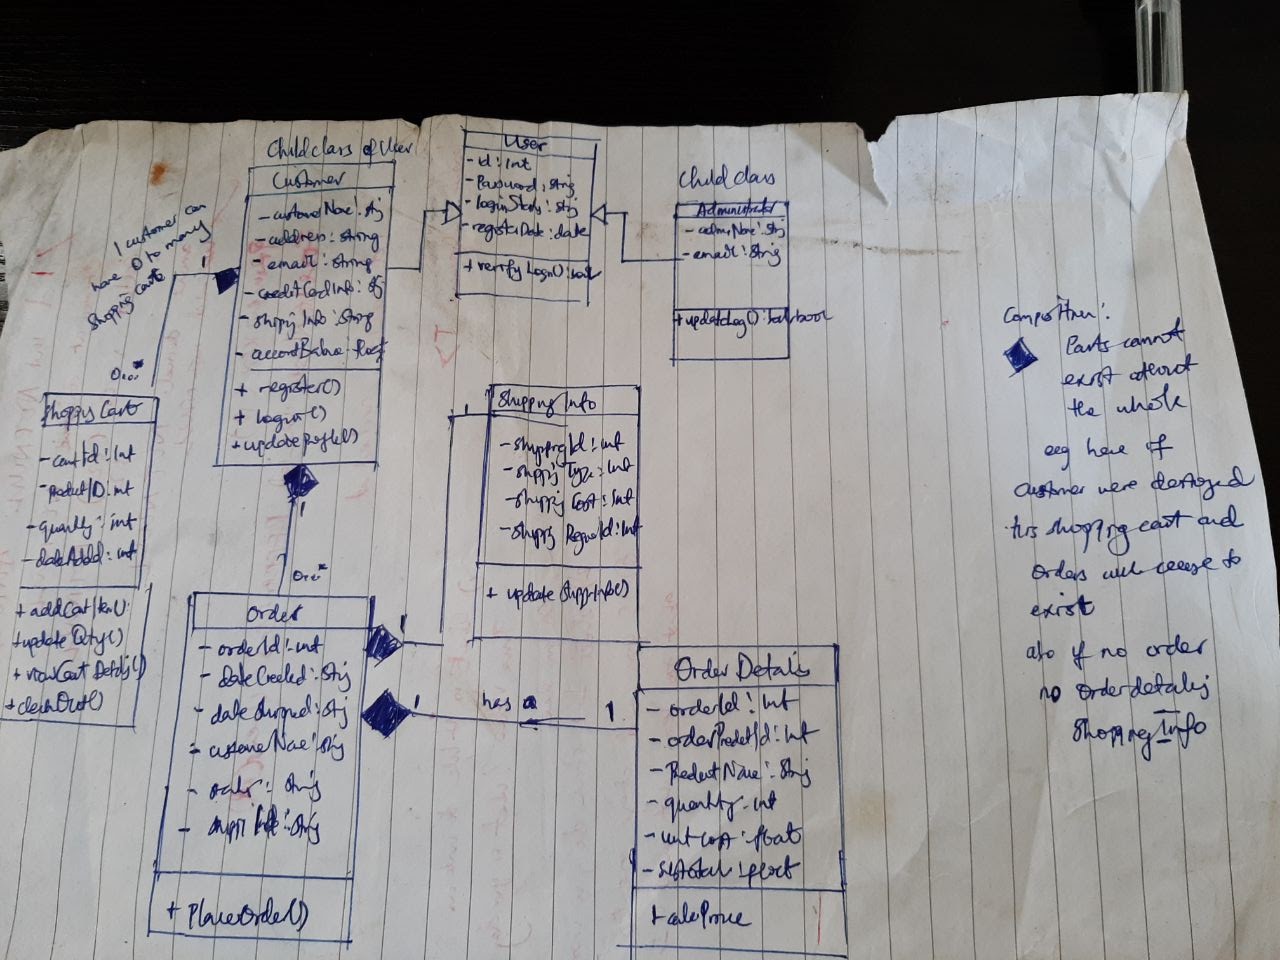 Child class of User
Customer
- customerName : Stj
- address : string
- email : string
- creditCardInfo : Stj
- shippj Info : String
- accountBalance : float
+ register()
+ login()
+ updateprofile()
User
- id : Int
- Password : strij
- loginStatus : strij
- registerDate : date
+ verifyLogin() : bool
Child class
Administrator
- adminName : Strj
- email : String
1 customer can
have 0 to many
shopping carts
1
0...*
Shoppig Cart
- cartId : Int
- ProductID : int
- quantity : int
- dateAdded : int
+ addCartItem()
+ update Qty()
+ viewCart Details()
+ checkOut()
1
0...*
Shipping Info
- shippingId : int
- shippij Type : Int
- shippij Cost : Int
- Shippij RegionId : Int
+ update Shippi Info()
1
Order
- orderId : int
- dateCreated : Strij
- dateShipped : Strj
- customerName : Strij
- : Strij
- : Strij
+ PlaceOrder()
1
1
has a
1
Order Details
- orderId : Int
- orderProductId : Int
- ProductName : Strij
- quantity : int
- unitCost : float
- subtotal : float
+ calcPrice
Composition :
Parts cannot
exist without
the whole
eg here if
Customer were destroyed
his shopping cart and
Orders will cease to
exist
also if no order
no Orderdetails
Shopping Info